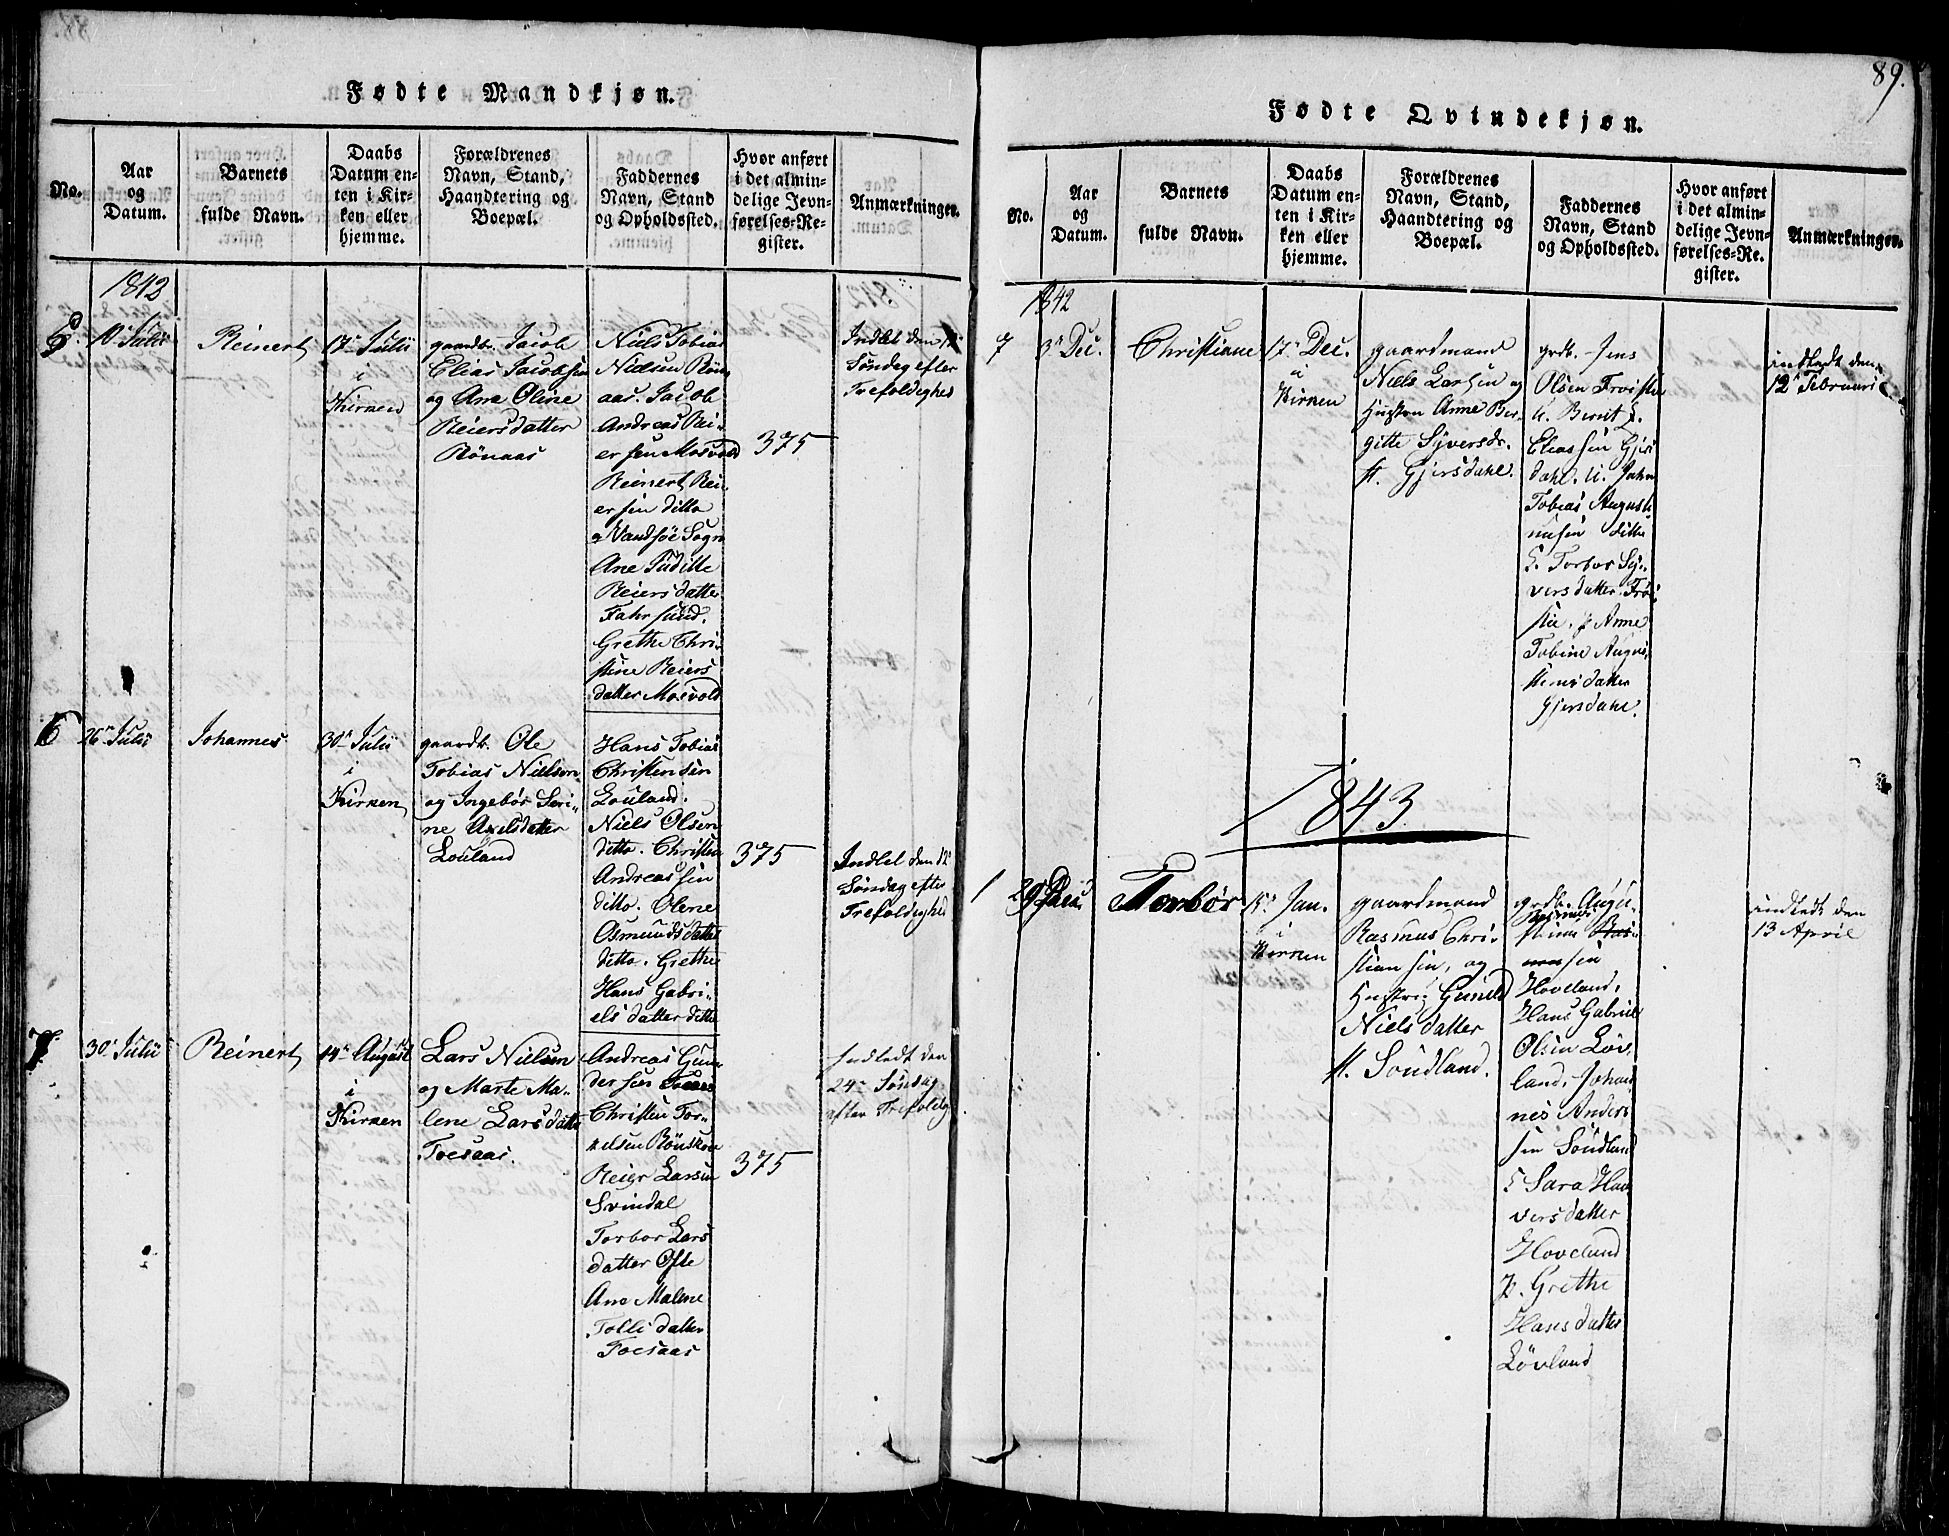 89.
Fødte Mandkjøn.
No.
Aar
og
Datum.
Barnets
fulde Navn.
Daabs
Datum en-
ten i Kir-
ken eller
hjemme.
Forældrenes
Navn, Stand,
Haandtering og
Boepæl.
Faddernes
Navn, Stand
og Opholdssted.
Hvor anført
i det almin-
delige Jevn-
førelses-Re-
gister.
Anmærkninger.
1842
5
10 Julii
Reinert
17 Julii
i
Kirken
gaardbr. Jacob
Elias Jacobsen
og Ane Oline
Reiersdatter
Rönaas
Niels Tobias
Nielsen Rön
aas. Jacob
Andreas Rei-
ersen Mosvold
Reinert Rei
ersen ditto
Vandsöe Sogn
Ane Juditte
Reiersdatter
Fahrsund.
Grethe Chri-
stine Reiers
datter Mosvold
375
Indlet den 12
Søndag efter
Trefoldighed
6
26 Julii
Johannes
30 Julii
i
Kirken
gaardb. Ole
Tobias Nielsen
og Ingebör Seri-
ne Axelsdatter
Louland
Hans Tobias
Christensen
Louland.
Niels Olsen
ditto. Christen
Andreassen
ditto. Olene
Osmundsdatter
ditto. Grethe
Hans Gabri-
elsdatter ditto
375
Indlet den 12
Søndag efter
Trefoldighed
7
30 Julii
Reinert
14 August
i
Kirken
Lars Nielsen
og Marte Ma-
lene Larsdatter
Foesaas.
Andreas Gun
dersen Foesaas
Christen Tor-
kelsen Rönsken
Reier Larsen
Svindal
Torbor Lars
datter Ofte
Ane Malene
Tollisdatter
Foesaas
375
Indledt den
24 Søndag
efter Trefoldig
Fødte Qvindekjøn.
No.
Aar
og
Datum.
Barnets
fulde Navn.
Daabs
Datum en-
ten i Kir-
ken eller
hjemme.
Forældrenes
Navn, Stand,
Haandtering og
Boepæl.
Faddernes
Navn, Stand
og Opholdssted.
Hvor anført
i det almin-
delige Jevn-
førelses-Re-
gister.
Anmærkninger.
1842
7
3 Dec.
Christiane
17 Dec.
i
Kirken
gaardmand
Niels Larsen og
Hustru Anne Ber-
gitte Syversdr.
Gjersdahl.
grdb. Jens
Olsen
Bernt
Eliassen Gjers
dahl. U. Jahn
Tobias August
inusen ditto
Torbor Sy-
versdatter
Anne
Tobine Augu-
stinusdatter
Gjersdahl.
indledt den
12 Februari
1843
1
29 Dec.
Torbör
15 Jan.
Kirken
gaardmand
Rasmus Chri-
stiansen, og
Hustru Guneld
Nielsdatter
Söndland.
grdb. Augu-
stinus
sen
Hoveland,
Hans Gabriel
Olsen Löv
land, Johan
nes Anders
sen Söndland
Sara Haa
versdatter
Hoveland
Grethe
Hansdatter
Lövland
indledt den
13 April